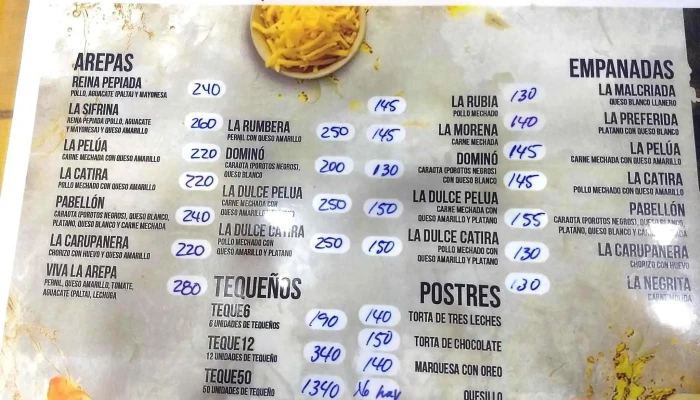 AREPAS
REINA PEPIADA 240
POLLO, AGUACATE (PALTA) Y MAYONESA
LA SIFRINA 260
REINA PEPIADA (POLLO, AGUACATE
Y MAYONESA) Y QUESO AMARILLO
LA PELÚA 220
CARNE MECHADA CON QUESO AMARILLO
LA CATIRA 220
POLLO MECHADO CON QUESO AMARILLO
PABELLÓN 240
CARAOTA (POROTOS NEGROS), QUESO BLANCO,
PLATANO, QUESO BLANCO Y CARNE MECHADA
LA CARUPANERA 220
CHORIZO CON HUEVO Y QUESO AMARILLO
VIVA LA AREPA 280
PERNIL, QUESO AMARILLO, TOMATE,
AGUACATE (PALTA), LECHUGA
LA RUMBERA 250
PERNIL CON QUESO AMARILLO
DOMINÓ 200
CARAOTA (POROTOS NEGROS),
QUESO BLANCO
LA DULCE PELUA 250
CARNE MECHADA CON
QUESO AMARILLO
LA DULCE CATIRA 250
POLLO MECHADO CON
QUESO AMARILLO Y PLATANO
TEQUEÑOS
TEQUE6 190
6 UNIDADES DE TEQUEÑOS
TEQUE12 340
12 UNIDADES DE TEQUEÑO
TEQUE50 1340
50 UNIDADES DE TEQUEÑO
145
145 LA RUBIA
POLLO MECHADO
LA MORENA
CARNE MECHADA
130 DOMINÓ
CARAOTA (POROTOS NEGROS)
CON QUESO BLANCO
150 LA DULCE PELUA
CARNE MECHADA CON
QUESO AMARILLO Y PLATANO
150 LA DULCE CATIRA
POLLO MECHADO CON
QUESO AMARILLO Y PLATANO
POSTRES
140 TORTA DE TRES LECHES
150 TORTA DE CHOCOLATE
140 MARQUESA CON OREO
No hay QUESILLO
EMPANADAS
130 LA MALCRIADA
QUESO BLANCO LLANERO
140 LA PREFERIDA
PLATANO CON QUESO BLANCO
145 LA PELÚA
CARNE MECHADA CON QUESO AMARILLO
145 LA CATIRA
POLLO MECHADO CON QUESO AMARILLO
155 PABELLÓN
CARAOTA (POROTOS NEGROS), QUESO BLANCO,
PLATANO, QUESO BLANCO Y CARNE
130 LA CARUPANERA
CHORIZO CON HUEVO
130 LA NEGRITA
CARNE MOLIDA